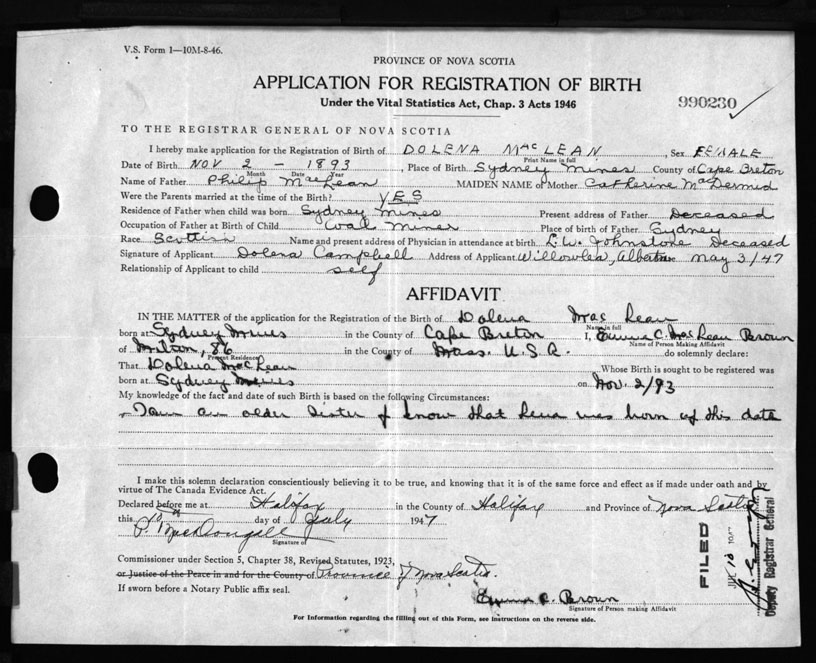 V.S. Form 1—10M-8-46.
PROVINCE OF NOVA SCOTIA
APPLICATION FOR REGISTRATION OF BIRTH
Under the Vital Statistics Act, Chap. 3 Acts 1946
990230
TO THE REGISTRAR GENERAL OF NOVA SCOTIA
I hereby make application for the Registration of Birth of DOLENA MacLEAN, Sex FEMALE
Print Name in full
Date of Birth NOV 2 - 1893, Place of Birth Sydney Mines County of Cape Breton
Month Day Year
Name of Father Philip MacLean MAIDEN NAME of Mother Catherine McDermid
Were the Parents married at the time of the Birth? YES
Residence of Father when child was born Sydney Mines Present address of Father Deceased
Occupation of Father at Birth of Child Coal Miner Place of birth of Father Sydney
Race Scottish Name and present address of Physician in attendance at birth L.W. Johnstone Deceased
Signature of Applicant Dolena Campbell Address of Applicant Willowlea, Alberta May 3/47
Relationship of Applicant to child self
AFFIDAVIT
IN THE MATTER of the application for the Registration of Birth of Dolena MacLean
Name in full
born at Sydney Mines in the County of Cape Breton I, Emma C. MacLean Brown
Name of Person Making Affidavit
of Milton, 86 in the County of Mass. U.S.A. do solemnly declare:
Present Residence
That Dolena MacLean Whose Birth is sought to be registered was
born at Sydney Mines on Nov. 2/93
My knowledge of the fact and date of such Birth is based on the following Circumstances:
I am an older sister & know that Lena was born on this date
I make this solemn declaration conscientiously believing it to be true, and knowing that it is of the same force and effect as if made under oath and by
virtue of The Canada Evidence Act.
Declared before me at Halifax in the County of Halifax and Province of Nova Scotia
this 10 day of July 1947
P. MacDougall
Signature of
Commissioner under Section 5, Chapter 38, Revised Statutes, 1923,
or Justice of the Peace in and for the County of Province of Nova Scotia.
If sworn before a Notary Public affix seal.
Emma C. Brown
Signature of Person making Affidavit
For Information regarding the filling out of this Form, see instructions on the reverse side.
FILED
Deputy Registrar General